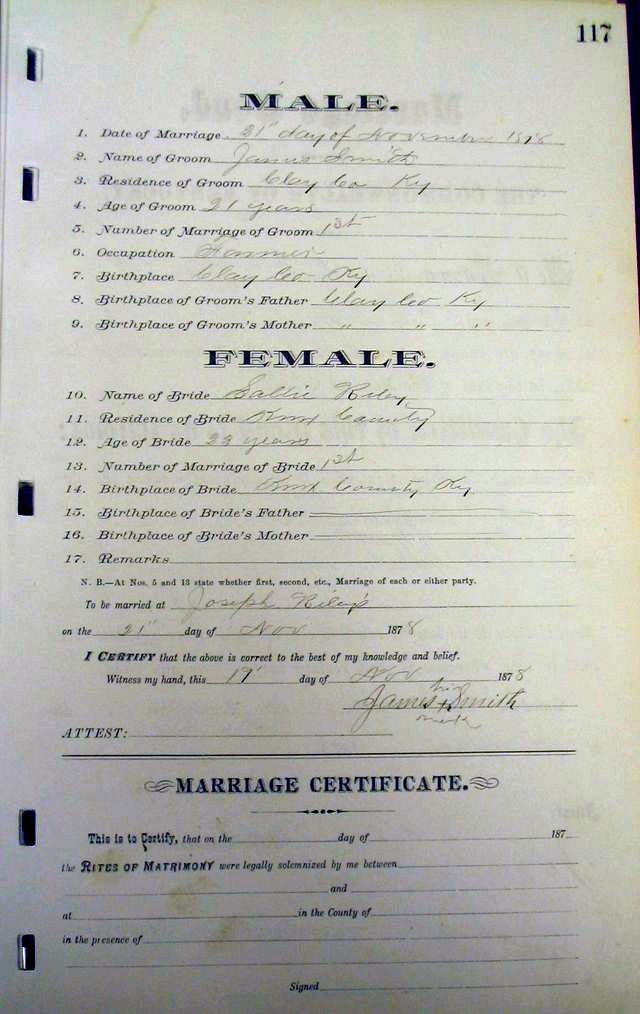 117
MALE.
1. Date of Marriage 21" day of November 1878
2. Name of Groom James Smith
3. Residence of Groom Clay Co Ky
4. Age of Groom 21 years
5. Number of Marriage of Groom 1st
6. Occupation Farmer
7. Birthplace Clay Co Ky
8. Birthplace of Groom's Father Clay Co Ky
9. Birthplace of Groom's Mother " " "
FEMALE.
10. Name of Bride Sallie Riley
11. Residence of Bride Knox County
12. Age of Bride 22 years
13. Number of Marriage of Bride 1st
14. Birthplace of Bride Knox County Ky.
15. Birthplace of Bride's Father
16. Birthplace of Bride's Mother
17. Remarks
N. B.—At Nos. 5 and 13 state whether first, second, etc., Marriage of each or either party.
To be married at Joseph Riley's
on the 21" day of Nov 1878
I CERTIFY that the above is correct to the best of my knowledge and belief.
Witness my hand, this 19" day of Nov 1878
his
James X Smith
mark
ATTEST:
MARRIAGE CERTIFICATE.
This is to Certify, that on the day of 187
the RITES OF MATRIMONY were legally solemnized by me between
and
at in the County of
in the presence of
Signed